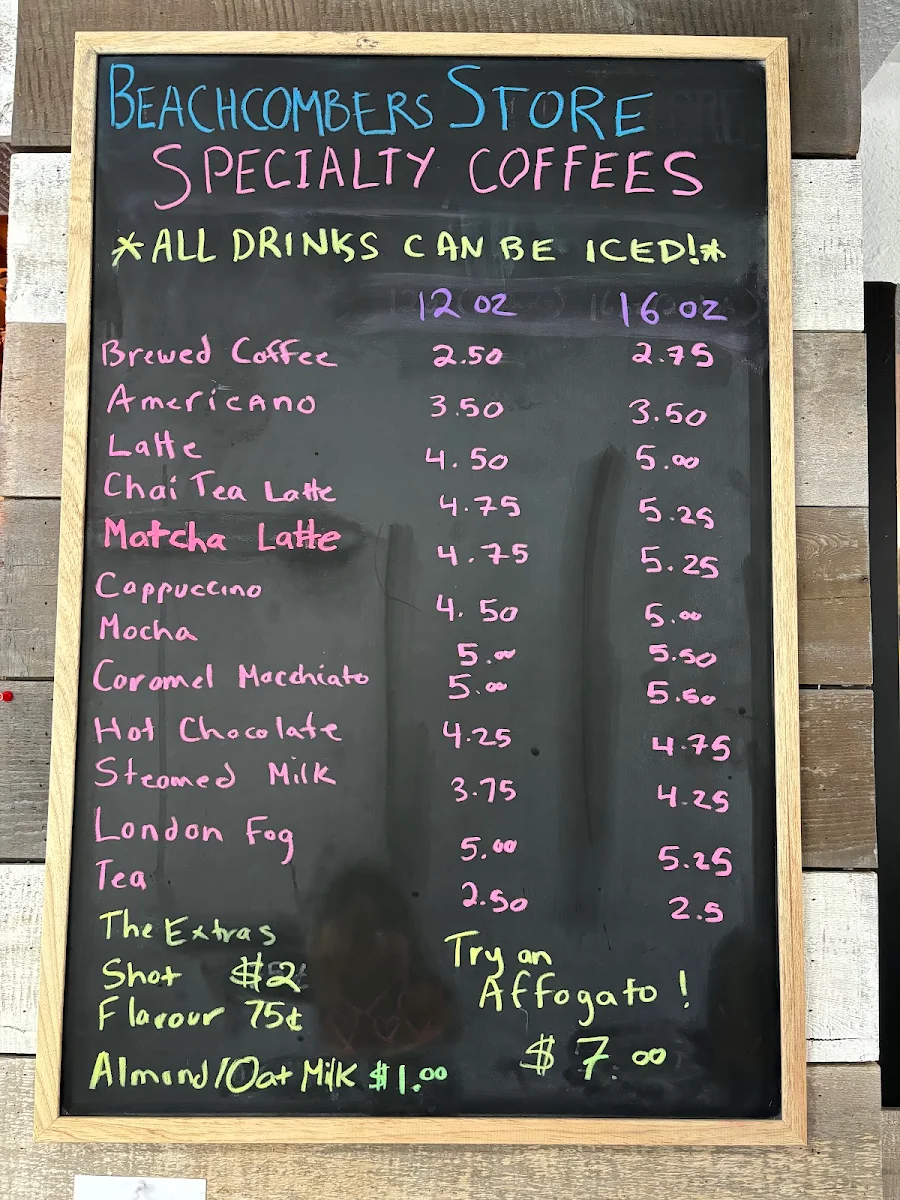 BEACHCOMBERS STORE
SPECIALTY COFFEES
*ALL DRINKS CAN BE ICED!*
12 oz 16 oz
Brewed Coffee 2.50 2.75
Americano 3.50 3.50
Latte 4.50 5.00
Chai Tea Latte 4.75 5.25
Matcha Latte 4.75 5.25
Cappuccino 4.50 5.00
Mocha 5.00 5.50
Caramel Macchiato 5.00 5.50
Hot Chocolate 4.25 4.75
Steamed Milk 3.75 4.25
London Fog 5.00 5.25
Tea 2.50 2.5
The Extras
Shot $2
Flavour 75¢
Almond/Oat Milk $1.00
Try an
Affogato!
$7.00